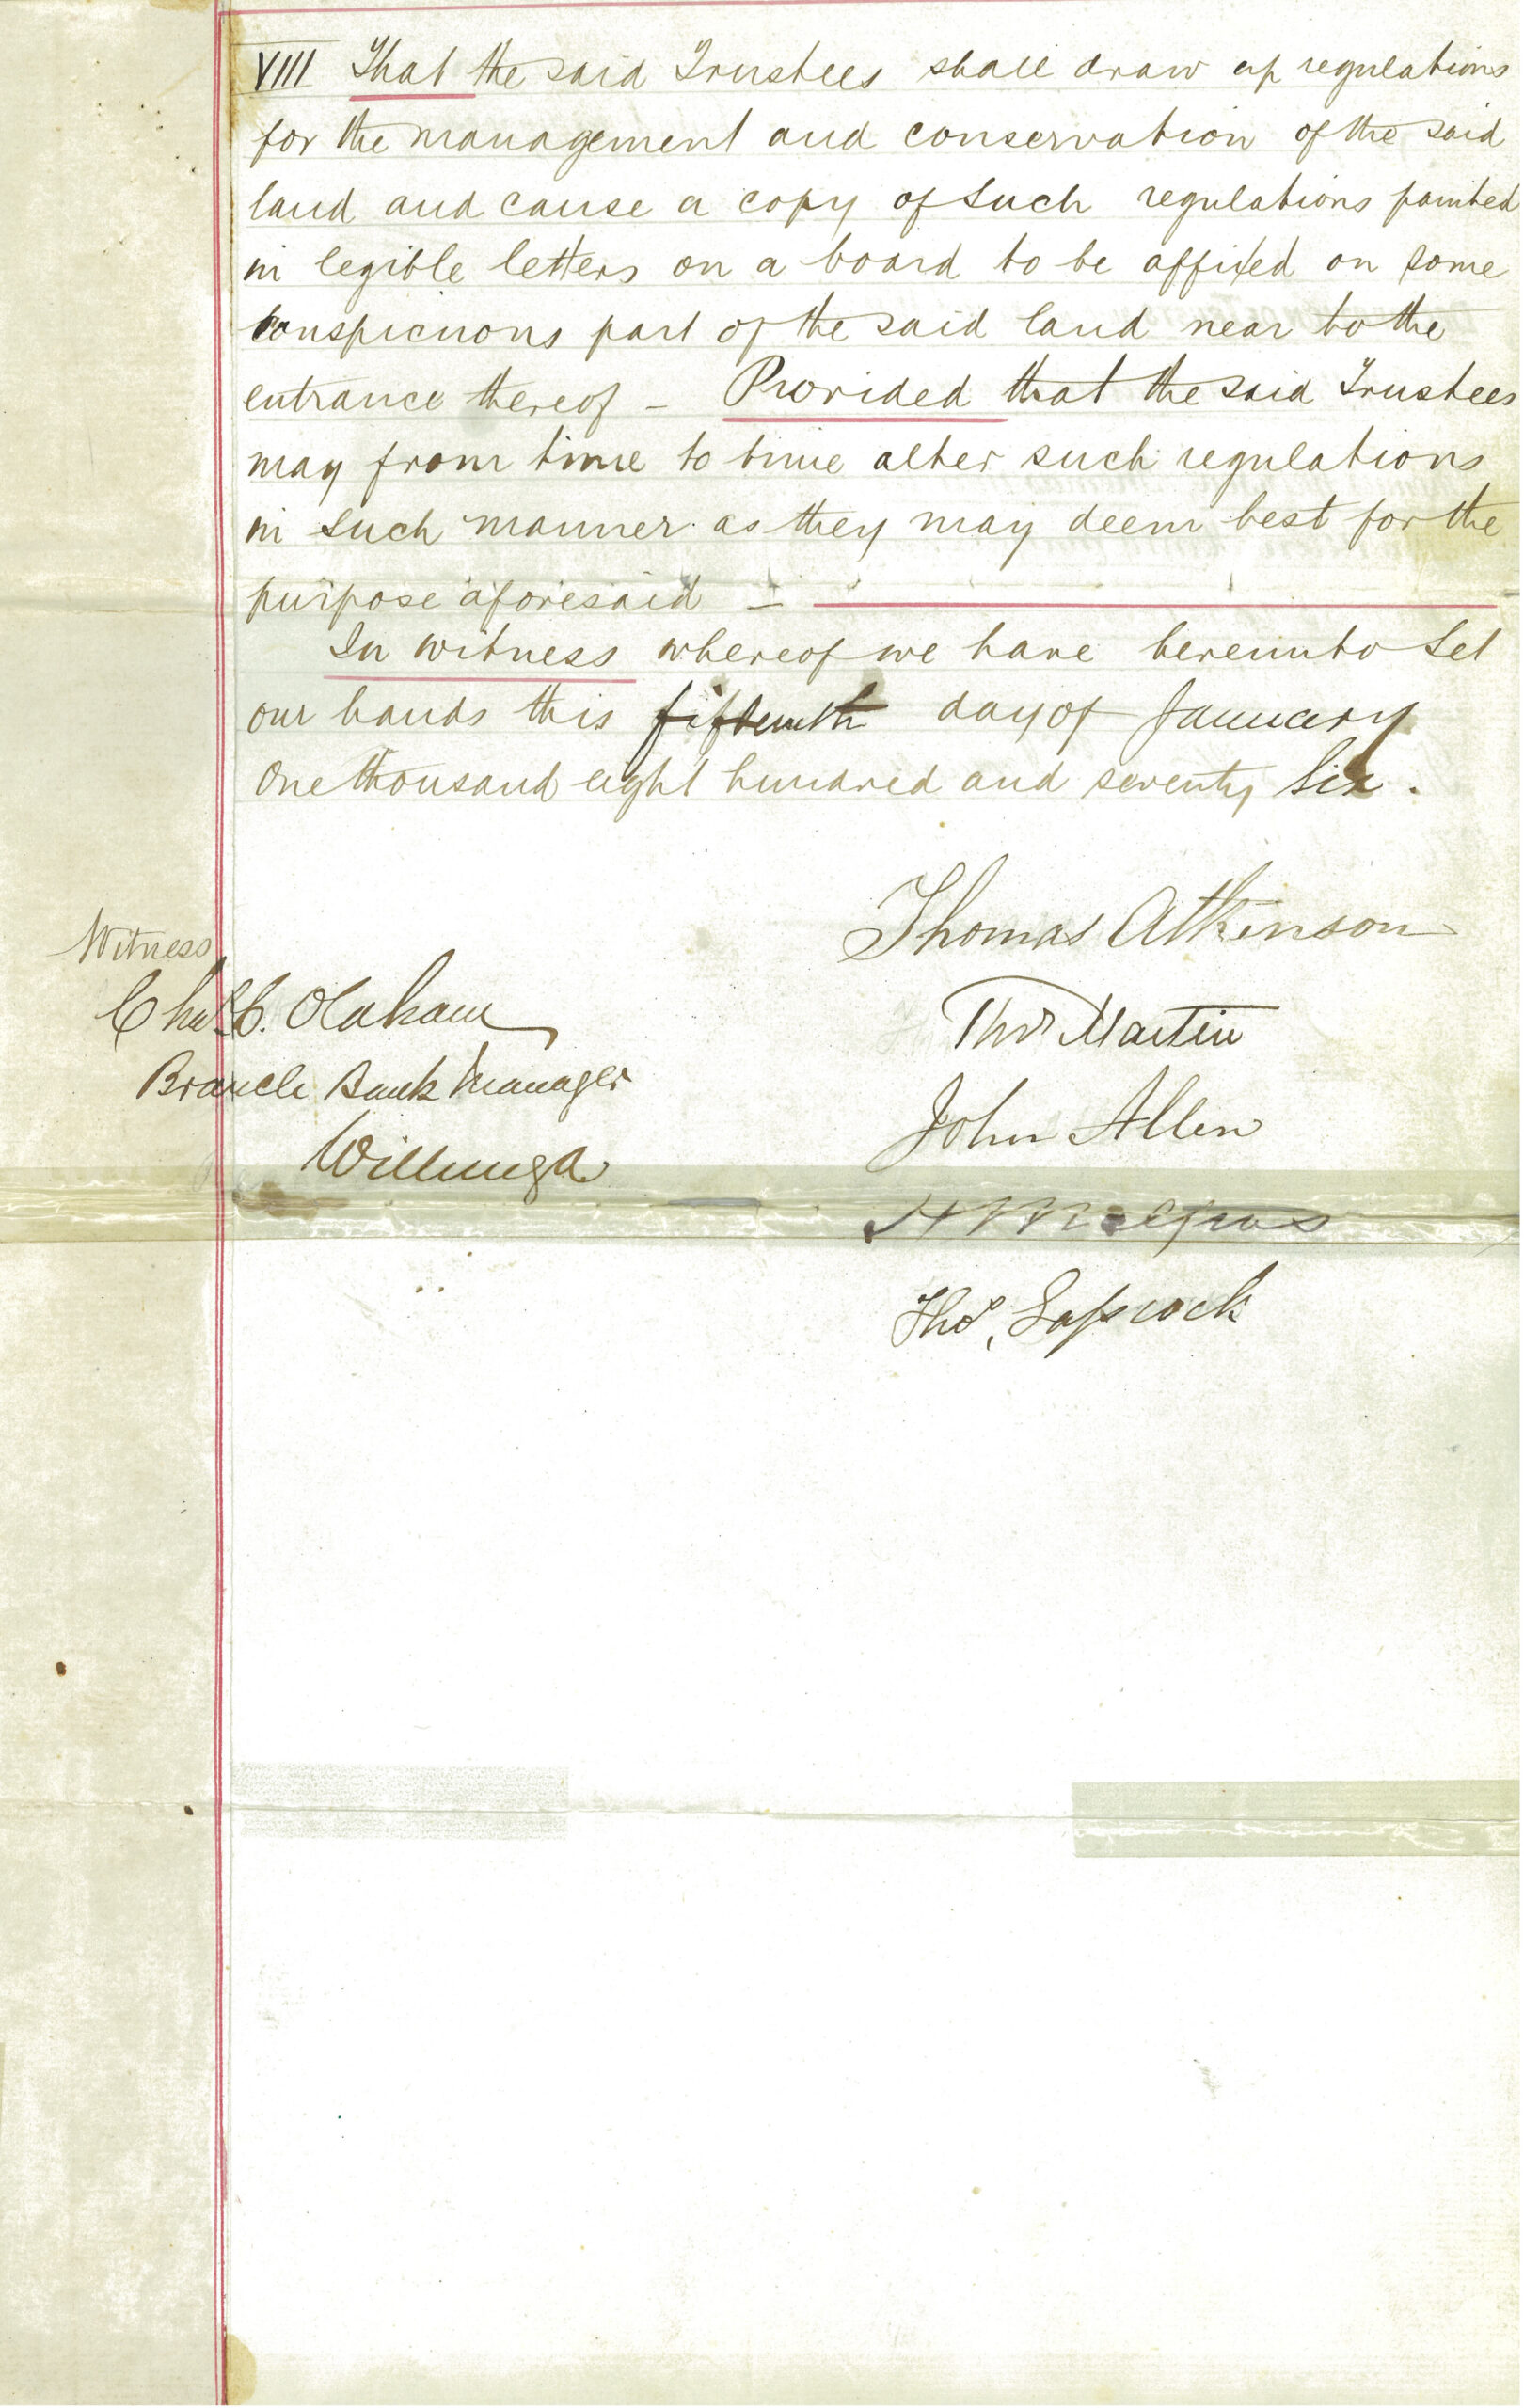 VIII That the said Trustees shall draw up regulations
for the management and conservation of the said
land and cause a copy of such regulations painted
in legible letters on a board to be affixed on some
conspicuous part of the said land near to the
entrance thereof – Provided that the said Trustees
may from time to time alter such regulations
in such manner as they may deem best for the
purpose aforesaid –
In witness whereof we have hereunto set
our hands this fifteenth day of January
One thousand eight hundred and seventy six.
Thomas Atkinson
Witness
Thos Martin
Chas C.
Branch Bank Manager
John Allen
Willunga
Thos,